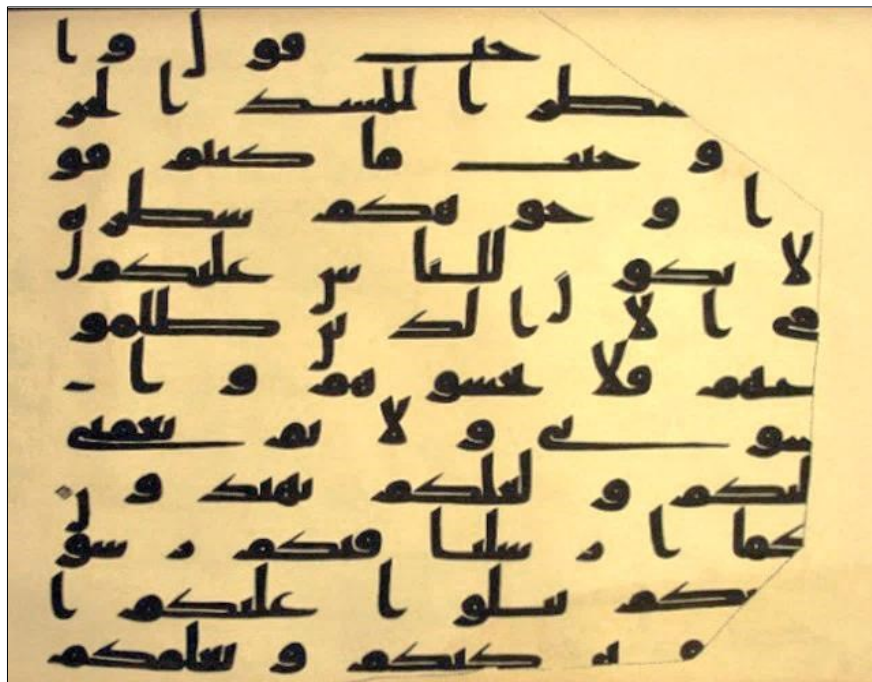 حيث فول وا
شطر المسجد الحر
وحيث ما كنتم فو
ا وجوهكم شطره
لا يكون للناس عليكم
الا الذين ظلموا
منهم فلا تخشوهم وا
شوني ولاتم نعمتي
ليكم ولعلكم تهتدون
كما ارسلنا فيكم رسو
نكم يتلوا عليكم ا
كيكم ويعلمكم